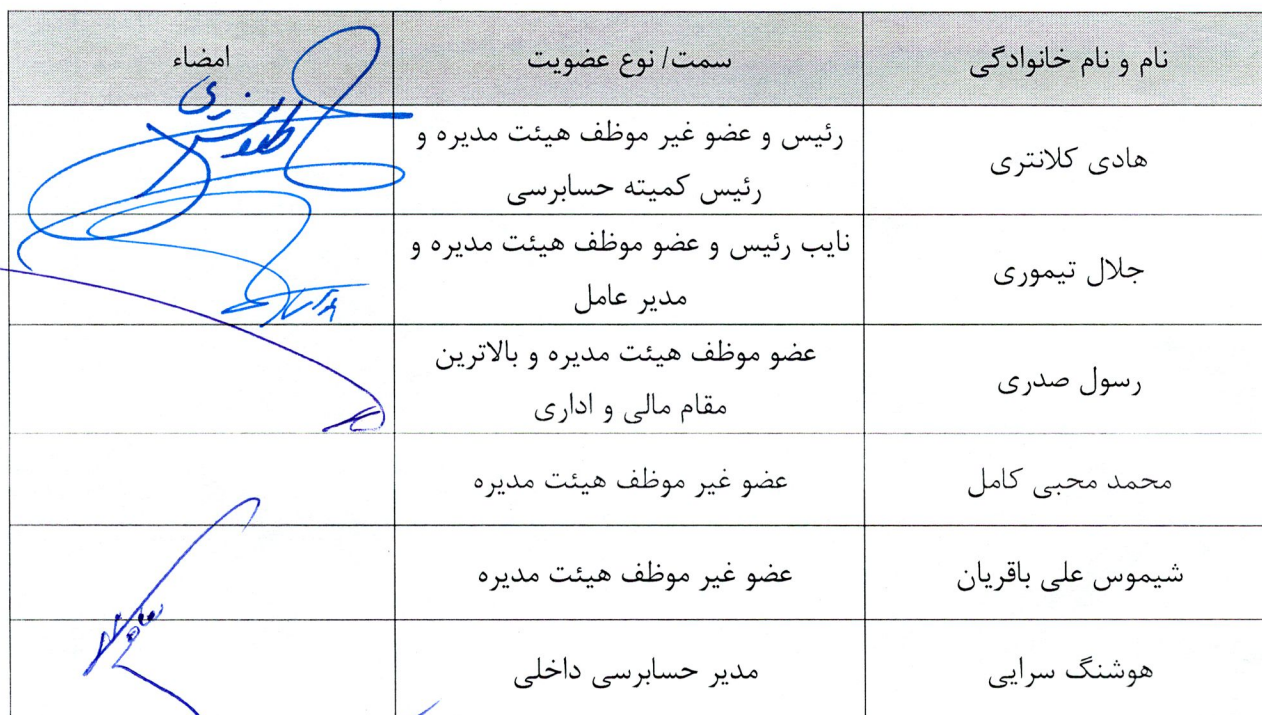 نام و نام خانوادگی سمت/ نوع عضویت امضاء
هادی کلانتری رئیس و عضو غیر موظف هیئت مدیره و
رئیس کمیته حسابرسی
جلال تیموری نایب رئیس و عضو موظف هیئت مدیره و
مدیر عامل
رسول صدری عضو موظف هیئت مدیره و بالاترین
مقام مالی و اداری
محمد محبی کامل عضو غیر موظف هیئت مدیره
شیموس علی باقریان عضو غیر موظف هیئت مدیره
هوشنگ سرایی مدیر حسابرسی داخلی